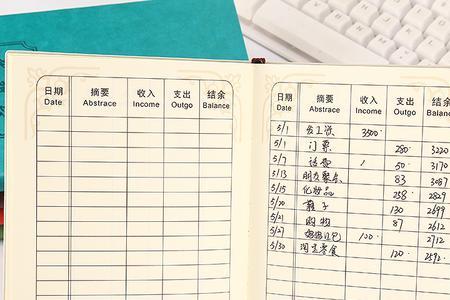 日期 摘要 收入 支出 结余
Date Abstrace Income Outgo Balance
日期 摘要 收入 支出 结余
Date Abstrace Income Outgo Balance
5/1 发工资 3500
5/1 门票 280 3220
5/7 话费 50 3170
5/13 朋友聚餐 83 3087
5/15 化妆品 258 2829
5/20 鞋子 130 2699
5/21 购物 87 2612
5/27 红包 100 2712
5/30 淘宝零食 120 2592